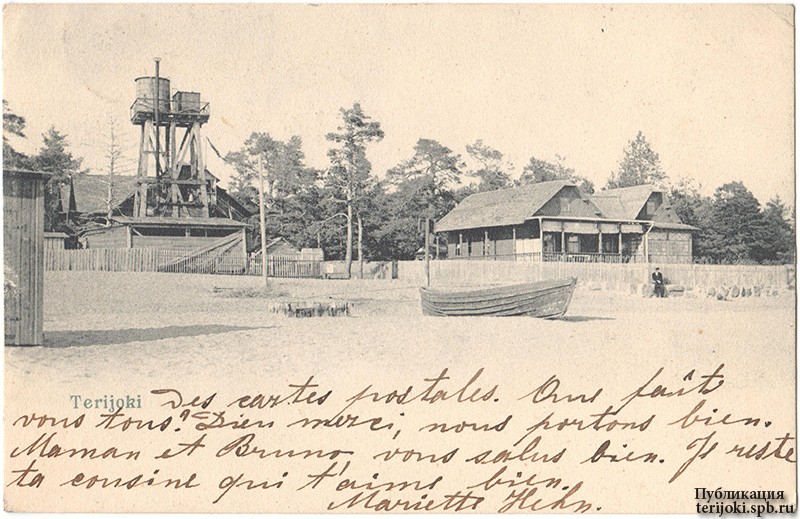 Terijoki Des cartes postales. Que faût
vous tous? Dieu merci, nous portons bien.
Maman et Bruno vous salus bien. Je reste
ta cousine qui t'aime bien.
Mariette Hehn.
Публикация
terijoki.spb.ru